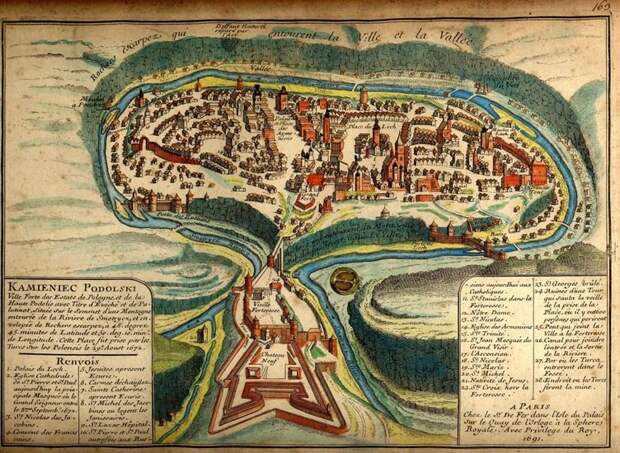 169
Rochers escarpez qui entourent la Ville et la Vallée
Vallée
Place du Loch
Vieille
Forteresse
Chateau
Neuf
KAMIENIEC PODOLSKI
Ville Forte des Estats de Pologne, et de la
Haute Podolie avec Titre d'Evesché et de Pa-
latinat, Située sur le Sommet d'une Montagne
entourée de la Riviere de Smotrycz, et en-
velopée de Rochers escarpez, a 48. degrez
45. minutes de Latitude
de Longitude. Cette Place fut prise par les
Turcs sur les Polonois le 29 Aoust 1672.
Renvois
1. Palais du Loch.
2. Eglise Cathédrale
de St. Pierre et St. Paul
aujourdhuy la prin-
cipale Mosquée où le
Grand Seigneur entra
3. St. Nicolas des Ja-
cobins.
4. Couvent des Francis-
cains.
5. Jesuites, apresent
Ecurie.
6. Carmes déchaussez
7. Sainte Catherine
8. St. Michel des
9. St. Lazare Hôpital.
10. St. Pierre et St. Paul
autrefois aux Rus-
siens aujourdhuy aux
Catholiques.
11. St. Stanislas dans la
Forteresse.
12. Nôtre Dame.
13. St. Nicolas.
14. Eglise des Armeniens
15. Ste. Trinité.
16. St. Jean Mosquée du
Grand Visir
17. l'Ascension.
18. St. Nicolas.
19. Ste. Marie
20. St. Michel
21. Nativité de Jesus,
22. Ste. Croix hors la
Forteresse.
23. St. Georges brûlé.
24. Ruines d'une Tour
qui sauta la veille
de la prise de la
Place, où il y eut
personnes qui périrent
25. Pont qui joint la
Ville à la Forteresse.
26. Canal pour joindre
l'entrée et la Sortie
de la Riviere.
27. Par où les Turcs
entrerent dans le
Fossé.
28. Endroit où les Turcs
firent la mine.
A PARIS
Chez le Sr. De Fer dans l'Isle du Palais
Sur le Quay de l'Orloge à la Sphere
Royale, Avec Privilege du Roy,
1691.